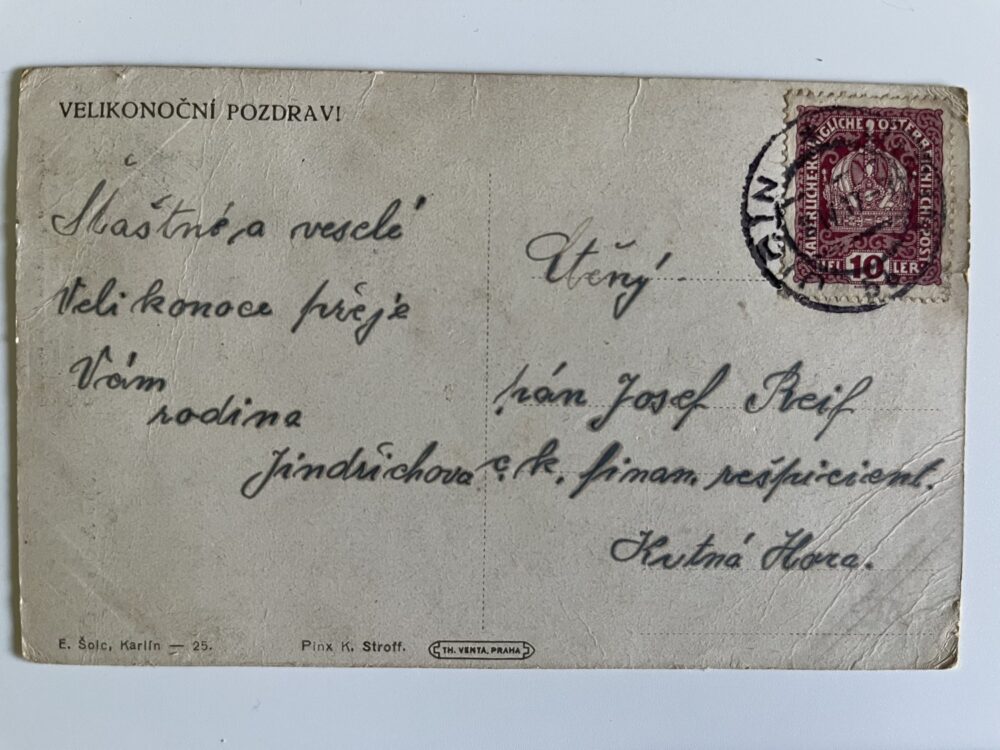 VELIKONOČNÍ POZDRAV!
Šťastné a veselé
Velikonoce přěje
Vám
rodina
Jindřichova
Ctěný
pán Josef Reif
c. k. finan. rešpicient.
Kutná Hora.
KAISERLICHE KÖNIGLICHE ÖSTERREICHISCHE POST
HELLER
10
E. Šolc, Karlín — 25.
Pinx K. Stroff.
TH. VENTA, PRAHA